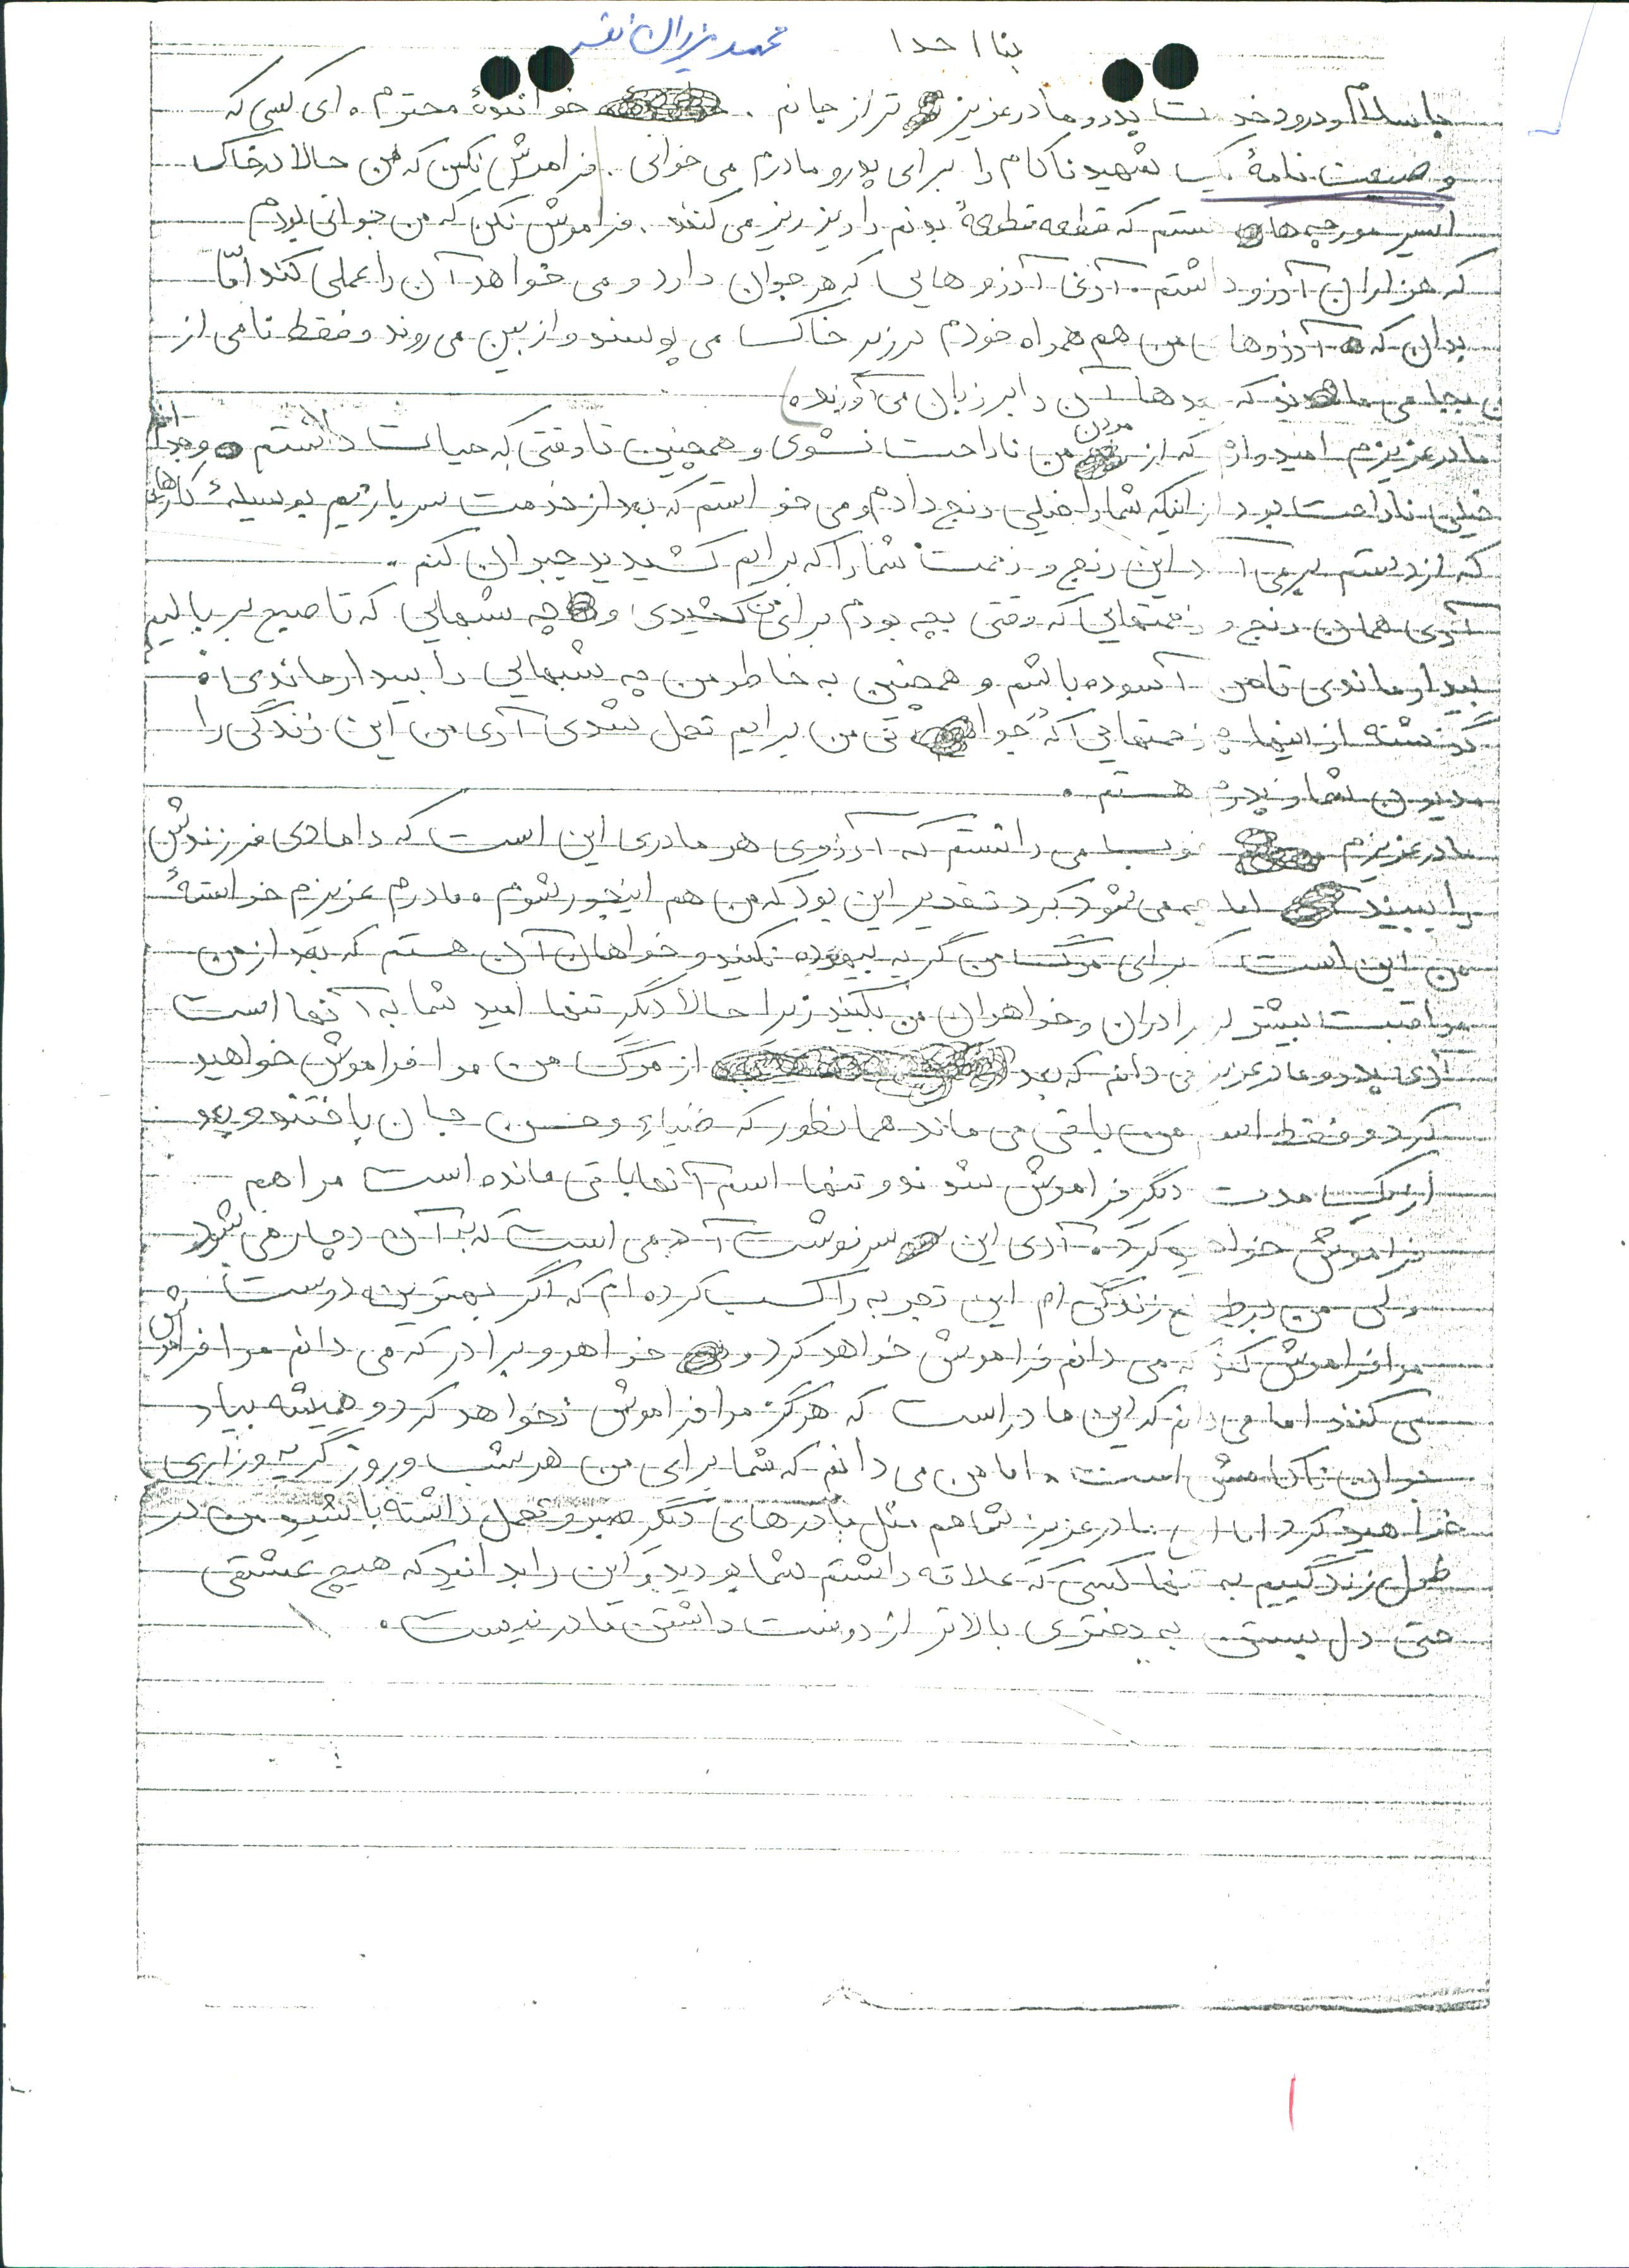 بنام خدا
محمد
با سلام و درود خدمت پدر و مادر عزیز تر از جانم . خوانندهٔ محترم . ای کسی که
وصیعت نامهٔ یک شهید ناکام را برای پدر و مادرم می خوانی . فرامرش نکن که من حالا در خاک
اسیر مورچه های هستم که قطعه قطعهٔ بدنم را ریز ریز می کنند . فراموش نکن که من جوانی بودم
که هزاران آرزو داشتم . آری آرزوهایی که هر جوان دارد و می خواهد آن را عملی کند امّا
بدان که آرزوهای من هم همراه خودم در زیر خاک می پوسند و از بین می روند و فقط نامی از
من بجا می ماند که بعدها آن را بر زبان می آورند)
مادر عزیزم امیدوارم که از مردن من ناراحت نشوی و همچنین تا وقتی که حیات داشتم وجداً
خیلی ناراحت بودم از اینکه شما را خیلی رنج دادم و می خواستم که بعد از خدمت سربازیم بوسیلهٔ کارهایی
که از دستم بر می آمد این رنج و زحمت شما را که برایم کشیدید جبران کنم .
آری همان رنج و زحمتهایی که وقتی بچه بودم برای من کشیدی و چه شبهایی که تا صبح بر بالینم
بیدار ماندی تا من آسوده باشم و همچنین به خاطر من چه شبهایی را بیدار ماندی .
گذشته از اینها چه زحمتهایی که جوانی من برایم تحمل شدی آری من این زندگی را
مدیون شما و پدرم هستم .
مادر عزیزم خوب می دانستم که آرزوی هر مادری این است که دامادی فرزندش
را ببیند اما چه می شود کرد تقدیر این بود که من هم اینجور شوم . مادرم عزیزم خواستهٔ
من این است که برای مرگ من گریه بیهوده نکنید و خواهان آن هستم که بعد از من
مراقبت بیشتر از برادران و خواهران من بکنید زیرا حالا دیگر تنها امید شما به آنها است
آری پدر و مادر عزیز می دانم که بعد از مرگ من مرا فراموش خواهید
کرد و فقط اسم من باقی می ماند همانطور که ضیاء و حسن جان باختند و بعد
از یک مدت دیگر فراموش شدند و تنها اسم آنها باقی مانده است مرا هم
فراموش خواهید کرد . آری این سرنوشت آدمی است که به آن دچار می شود
ولی من در طول زندگی ام این تجربه را کسب کرده ام که اگر بهترین دوستانش
مرا فراموش کند که می دانم فراموش خواهد کرد و خواهر و برادر که می دانم مرا فراموش
می کنند اما می دانم که این مادر است که هرگز مرا فراموش نخواهد کرد و همیشه بیاد
جوان ناکامش است . اما من می دانم که شما برای من هر شب و روز گریه و زاری
خواهید کرد اما ای مادر عزیز شما هم مثل مادرهای دیگر صبر و تحمل داشته باشید من در
طول زندگییم به تنها کسی که علاقه داشتم شما بودید و این را بدانید که هیچ عشقی
حتی دل بستن به دختری بالاتر از دوست داشتن مادر نیست .